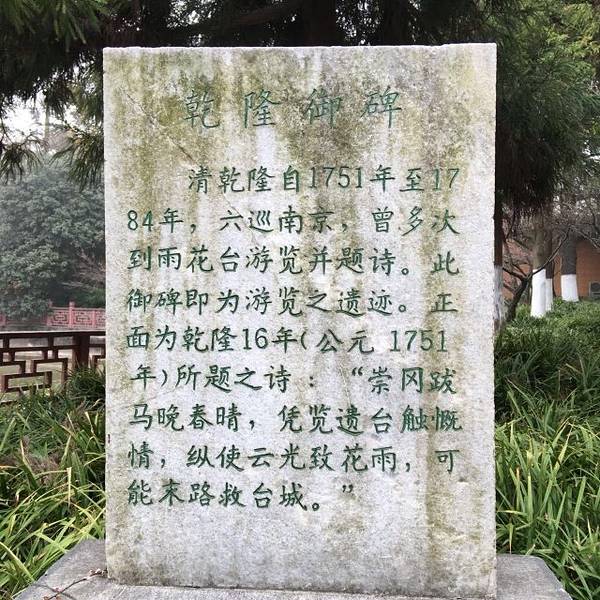 乾隆御碑
清乾隆自1751年至17
84年，六巡南京，曾多次
到雨花台游览并题诗。此
御碑即为游览之遗迹。正
面为乾隆16年(公元 1751
年)所题之诗：“崇冈跋
马晚春晴，凭览遗台触慨
情，纵使云光致花雨，可
能末路救台城。”